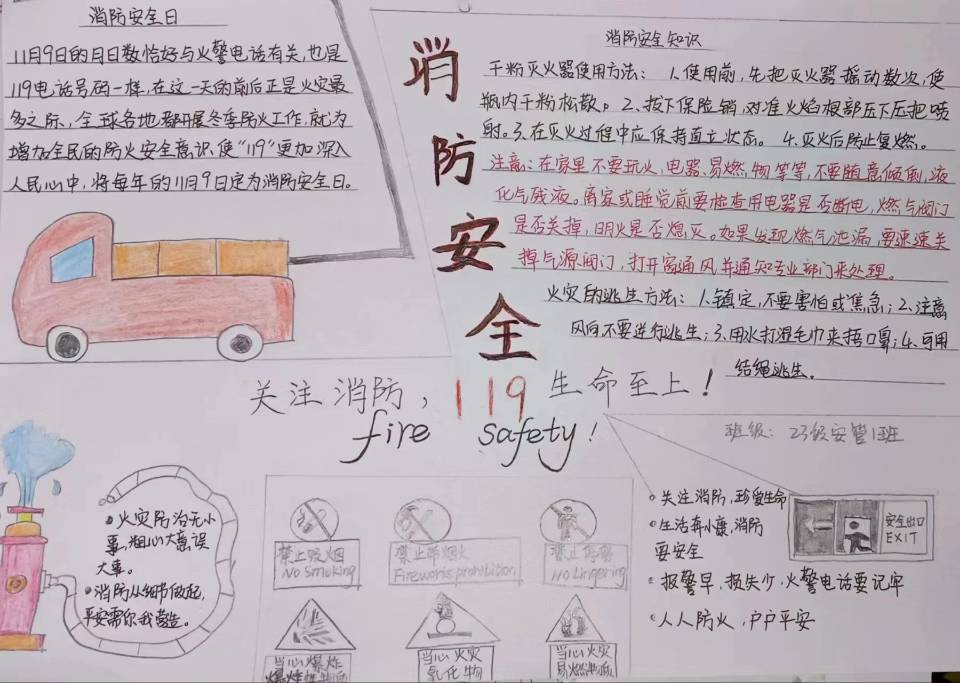 消防安全日
11月9日的月日数恰好与火警电话有关,也是
119电话号码一样,在这一天的前后正是火灾最
多之际,全球各地都开展冬季防火工作,就为
增加全民的防火安全意识,使"119"更加深入
人民心中,将每年的11月9日定为消防安全日。
消防安全
消防安全知识
干粉灭火器使用方法: 1.使用前,先把灭火器摇动数次,使
瓶内干粉松散。2.按下保险销,对准火焰根部压下压把喷
射。3.在灭火过程中应保持直立状态。 4.灭火后防止复燃。
注意:在家里不要玩火,电器,易燃,物等等,不要随意倾倒,液
化气残液。离家或睡觉前要检查用电器是否断电,燃气阀门
是否关掉,明火是否熄灭。如果发现燃气泄漏,要速速关
掉气源阀门,打开窗通风,并通知专业部门来处理。
火灾的逃生方法:1.镇定,不要害怕或焦急;2.注意
风向不要逆行逃生;3.用水打湿毛巾来捂口鼻;4.可用
结绳逃生。
关注消防,119生命至上!
fire safety!
班级: 23级安管1班
火灾防治无小
事,粗心大意误
大事。
消防从细节做起,
平安需你我营造。
禁止吸烟
No Smoking
禁止
Fireworks prohibition
禁止
No Lingering
当心爆炸
爆炸性物质
当心火灾
氧化物
当心火灾
易燃物质
关注消防,珍爱生命
生活奔小康,消防
要安全
报警早,损失少,火警电话要记牢
人人防火,户户平安
安全出口
EXIT